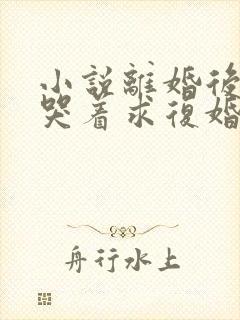 小說離婚後
哭着求復婚
舟行水上